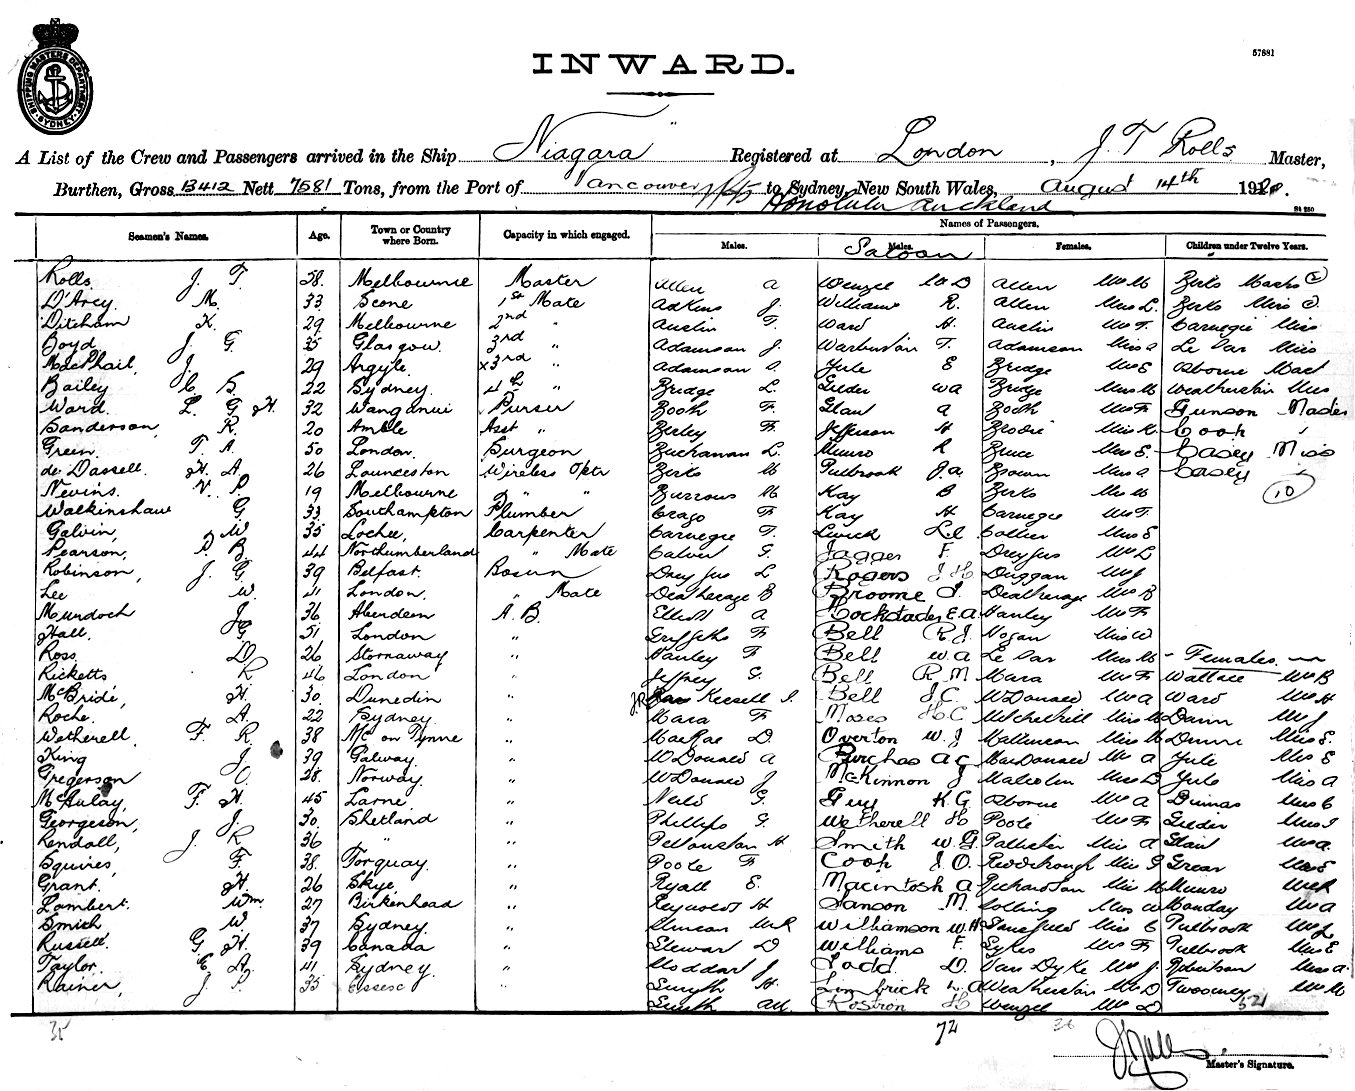 SHIPPING MASTERS DEPARTMENT SYDNEY
57881
INWARD.
A List of the Crew and Passengers arrived in the Ship Niagara Registered at London, J. T Rolls Master,
Burthen, Gross 13412 Nett 7581 Tons, from the Port of Vancouver to Sydney, New South Wales, August 14th 1920.
Honolulu Auckland
Names of Passengers.
Seamen's Names. Age. Town or Country where Born. Capacity in which engaged. Males. Males. Saloon Females. Children under Twelve Years.
Rolls J. T. 58. Melbourne Master Allen A Wenzel W D Allen Mrs M Berks
D'Arcy. M. 33 Scone 1st Mate Adkins J. Williams R. Allen Miss L. Berks Miss
Ditcham K. 29 Melbourne 2nd " Austin F. Ward H. Austin Mrs F. Carnegie Miss
Boyd J. G. 35 Glasgow. 3rd " Adamson J. Warburton T. Adamson Miss A Le Bar Miss
MacPhail, J. 29 Argyle. x3rd " Adamson Yule E Bridge Mrs E Osborne Mast
Bailey C. S. 22 Sydney. 4th " Bridge L. Geider W A Bridge Miss M Weatherston Miss
Ward. L. G. H. 32 Wanganui Purser Booth F. Glau A Booth Mrs F. Gunson Master
Sanderson, R. 20 Amble Asst " Bexley F. Jefferson H Brodie Miss K. Cook "
Green. T. A. 50 London. Surgeon Buchanan L. Munro R Bruce Miss E. Casey Miss
de Dassell. H. A. 26 Launceston Wireless Optr Berks M Pulbrook J. A. Brown Miss A. Casey "
Nevins. V. P. 19 Melbourne 2 " " Burrows M Kay B Berks Mrs M 10
Walkinshaw G 33 Southampton Plumber Crago F. Kay H Carnegie Mrs F.
Galvin, W 35 Lochee, Carpenter Carnegie F. Lwick Collier Miss E
Pearson, P. B. 44 Northumberland " Mate Calver G. Jagger F. Dreyfus Mrs L
Robinson, J. G. 39 Belfast. Bosun Dreyfus L Rogers J H Duggan Mrs J
Lee W. 41 London. " Mate Deatherage B Broome J. Deatherage Mrs B
Murdoch J. 36 Aberdeen A. B. Elliott A Hockstader E. A. Hanley Mrs F
Hall. G. 51 London " Griffiths F Bell R J. Hogan Miss W
Ross. D. 26 Stornaway " Hanley F Bell W. A Le Bar Mrs M - Females. -
Ricketts R 46 London " Jeffrey G. Bell R. M Mara Mrs F Wallace Mrs B
McBride, H. 30. Dunedin " J.R. Kessell I. Bell J. C. McDonald Mrs A Ward Mrs H
Roche. A. 22 Sydney. " Mara F Moses H. C. Mitchelhill Miss M Dunn Mrs J
Wetherell. F. R. 38 Nc on Tynne " MacRae D. Overton W. J Mallinson Miss M Dunne Miss E.
King J. 39 Galway. " McDonald A Purches A C MacDonald Mrs A Yule Mrs E
Gregerson O. 28. Norway. " McDonald J. McKinnon J Malcolm Miss D Yule Miss A
McAulay, F. H. 45 Larne. " Neild G. Guy K. G. Osborne Mrs A Dumas Miss C
Georgeson, J. 30. Shetland " Phillips G. Wetherell H Poole Mrs F. Geider Mrs I
Kendall, J. R 36 " " H. Smith W. G. Pallister Miss A Glau Mrs A.
Squires, F. 38. Torquay. " Poole F Cook J. O. Miss G Grear Miss E
Grant. H. 26 Skye. " Ryall E. Macintosh A Richardson Miss M Munro Mrs R
Lambert. Wm. 27 Birkenhead " Reynolds H Sanson M. Colling Miss W Monday Mrs A
Smith W. 37 Sydney. " Simcox W R Williamson W. H Miss C Pulbrook Mrs J.
Russell. G. H. 39 Canada " Stewart D Williams F. Sykes Mrs F Pulbrook Miss E
Taylor. C. A. 41 Sydney. " Stoddart J. Ladd D. Van Dyke Mrs J. Robertson Miss A.
Rainer, J. P. 35 Essex " Smyth H. Limbrick L. A Weatherston Mrs D Twomey Mrs M
Smyth Rostron H Wenzel Mrs D 52
35 72 36
Master's Signature.